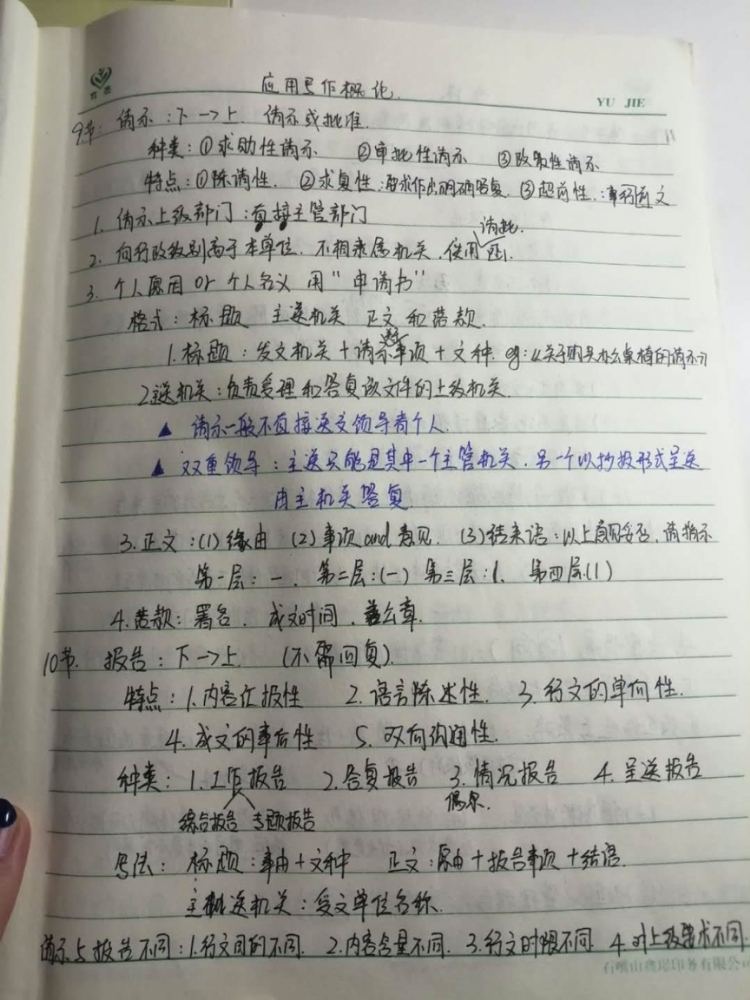 应用写作概论
YU JIE
9节: 请示:下→上. 请示或批准. 11
种类:①求助性请示 ②审批性请示 ③政策性请示
特点:①陈请性. ②求复性:要求作出明确答复. ③超前性:事前行文
1. 请示上级部门:直接主管部门
请批
2. 向行政级别高于本单位. 不相隶属机关, 使用函.
3. 个人原因 or 个人名义 用"申请书"
格式:标题 主送机关 正文 和落款.
1.标题:发文机关+请示事项+文种. eg:《关于购买办公桌椅的请示》
2.送机关:负责受理和答复该文件的上级机关.
▲ 请示一般不直接送交领导者个人.
▲ 双重领导:主送只能是其中一个主管机关, 另一个以抄报形式呈送
由主机关答复
3.正文:(1)缘由 (2)事项and意见. (3)结束语:以上意见妥否,请指示
第一层:一. 第二层:(一) 第三层:1. 第四层:(1)
4.落款:署名. 成文时间. 盖公章.
10节. 报告:下→上 (不需回复).
特点:1.内容汇报性 2.语言陈述性. 3.行文的单向性.
4.成文的事后性 5.双向沟通性.
种类:1.工作报告 2.答复报告 3.情况报告 4.呈送报告
综合报告 专题报告 偶尔.
写法: 标题:事由+文种 正文:原由+报告事项+结语.
主送机关:受文单位名称.
请示与报告不同:1.行文目的不同. 2.内容含量不同. 3.行文时限不同. 4.对上级要求不同.